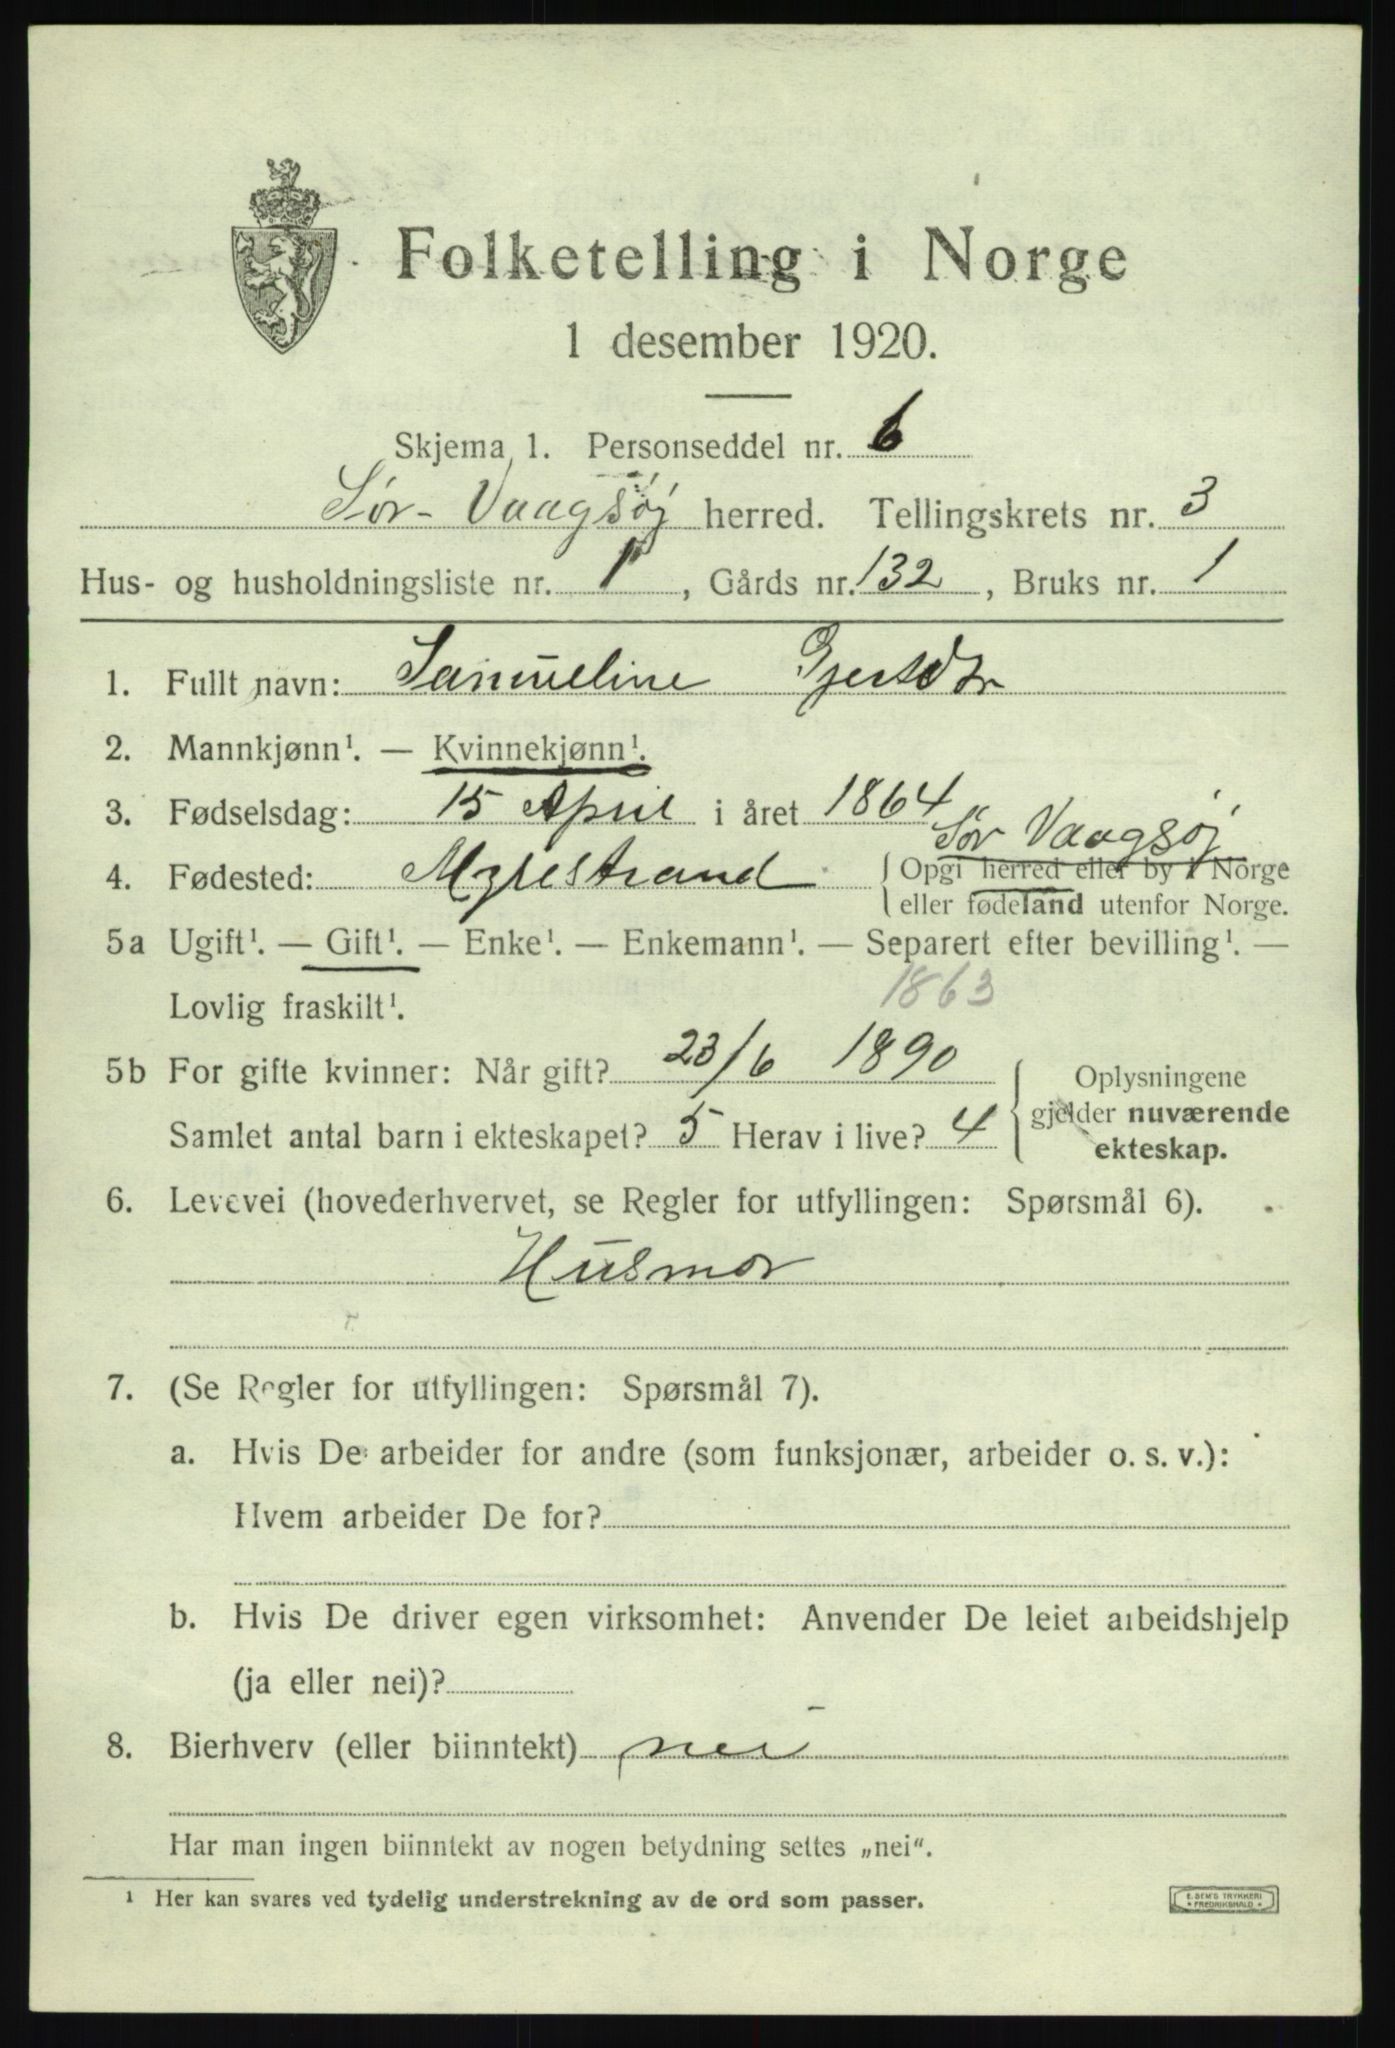 Folketelling i Norge
1 desember 1920.
Skjema 1. Personseddel nr. 6
Sør-Vaagsøj herred. Tellingskrets nr. 3
Hus- og husholdningsliste nr. 1, Gårds nr. 132, Bruks nr. 1
1. Fullt navn: Samueline Gjertsdtr
2. Mannkjønn¹. — Kvinnekjønn¹.
3. Fødselsdag: 15 April i året 1864
Sør Vaagsøj
4. Fødested: Myrestrand { Opgi herred eller by i Norge
eller fødeland utenfor Norge.
5a Ugift¹. — Gift¹. — Enke¹. — Enkemann¹. — Separert efter bevilling¹. —
Lovlig fraskilt¹. 1863
5b For gifte kvinner: Når gift? 23/6 1890
Samlet antal barn i ekteskapet? 5 Herav i live? 4
Oplysningene
gjelder nuværende
ekteskap.
6. Levevei (hovederhvervet, se Regler for utfyllingen: Spørsmål 6).
Husmor
7. (Se Regler for utfyllingen: Spørsmål 7).
a. Hvis De arbeider for andre (som funksjonær, arbeider o. s. v.):
Hvem arbeider De for?
b. Hvis De driver egen virksomhet: Anvender De leiet arbeidshjelp
(ja eller nei)?
8. Bierhverv (eller biinntekt) nei
Har man ingen biinntekt av nogen betydning settes „nei“.
¹ Her kan svares ved tydelig understrekning av de ord som passer.
E. SEM'S TRYKKERI
* FREDRIKSHALD *